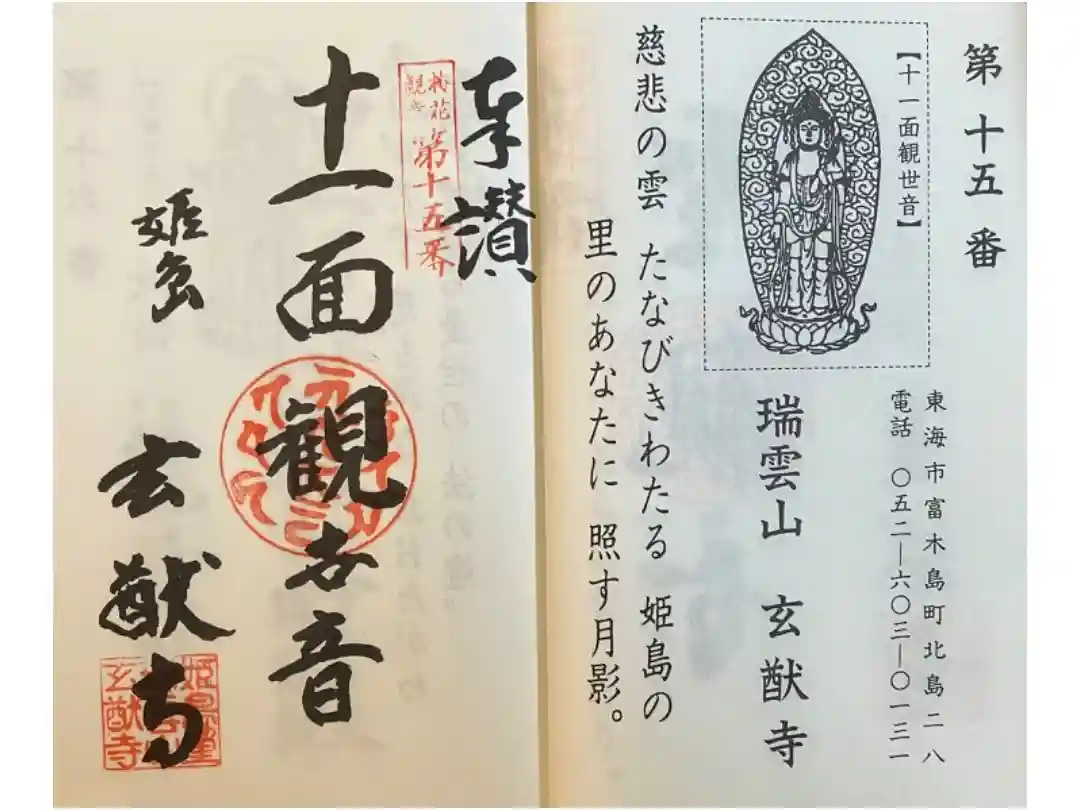 第十五番
【十一面観世音】
東海市富木島町北島二八
電話 〇五二―六〇三―〇一三一
瑞雲山 玄猷寺
慈悲の雲 たなびきわたる 姫島の
里のあなたに 照す月影。
奉讃
梅花
観音
第十五番
十一面観世音
姫島
玄猷寺
玄猷寺